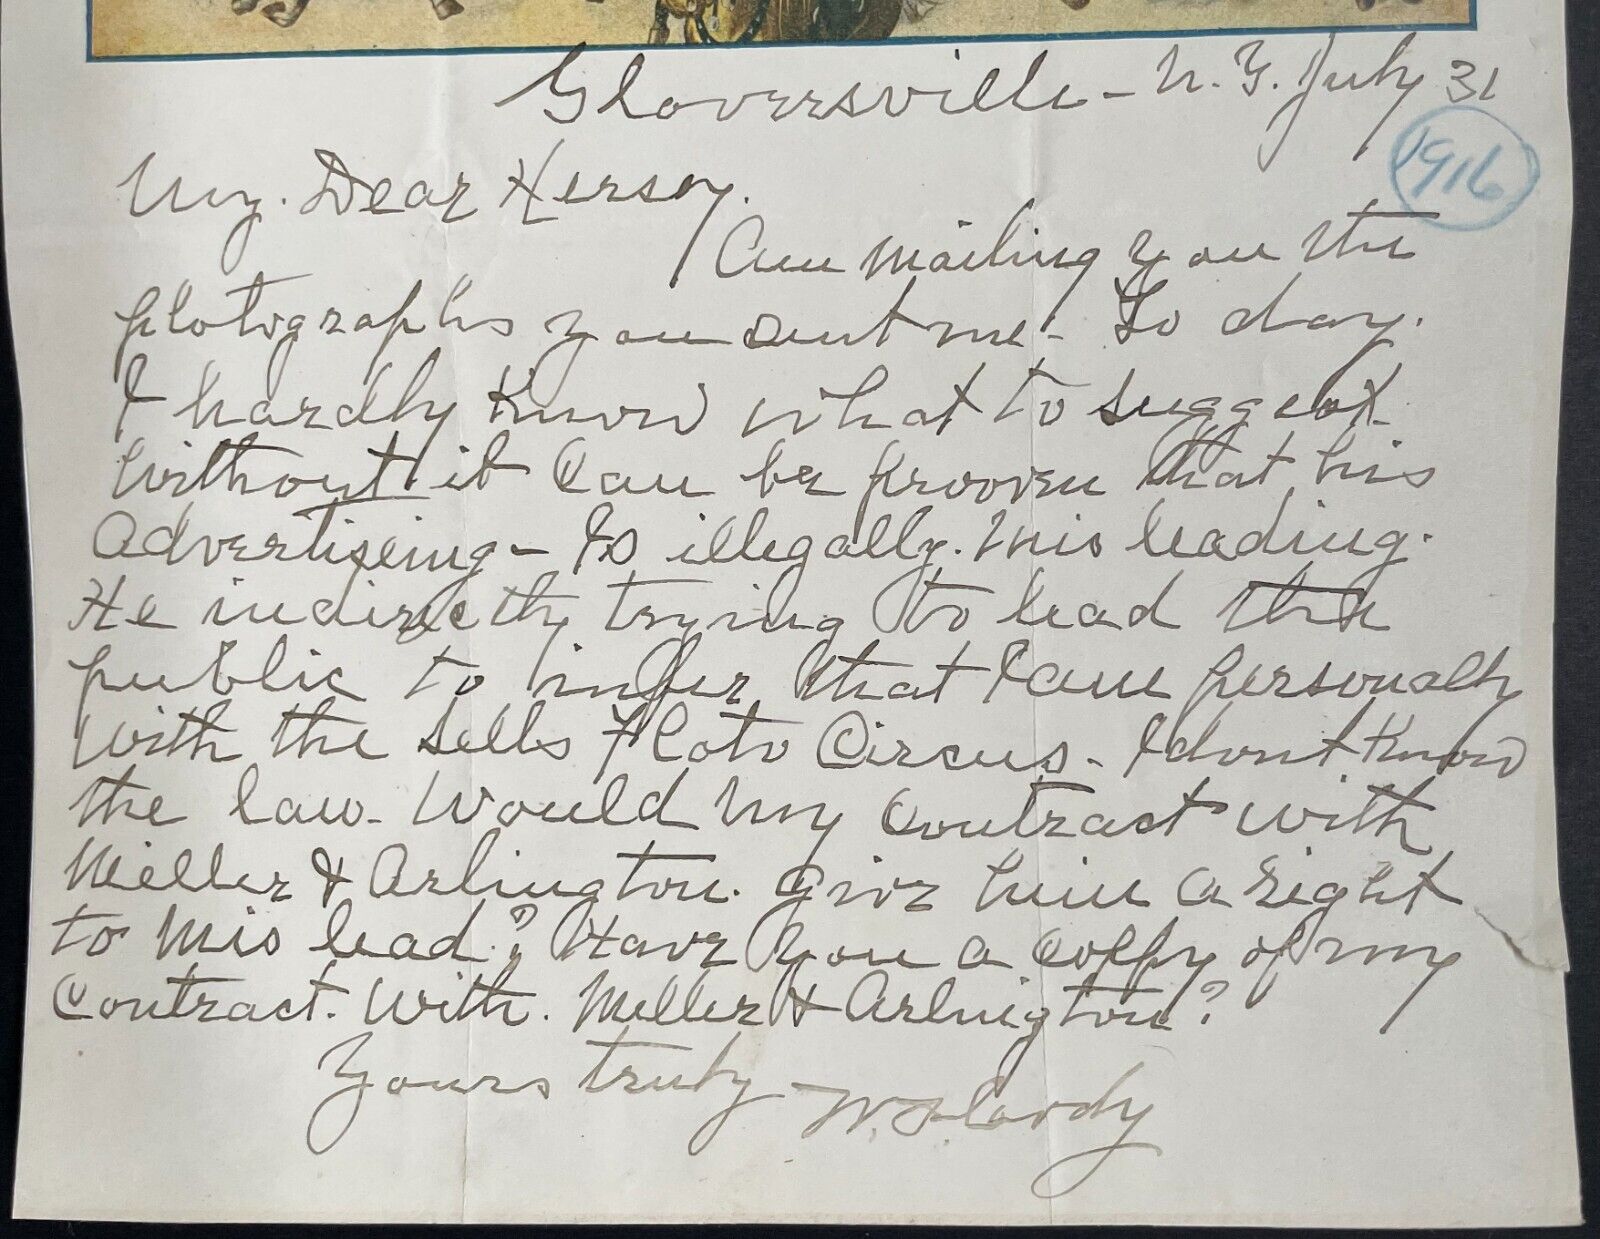 Gloversville - N.Y. July 31
1916
My. Dear Hersey.
Am Mailing you the
photographs you sent me - To day.
I hardly Know what to suggest
Without it Can be prooven that his
Advertiseing - Is illegally. Mis leading.
He indirectly trying to lead the
public to infer that I am personally
With the Sells Floto Circus - I dont Know
the law. Would my Contract with
Meller & Arlington. give him a right
to Mis lead? Have you a Coppy of my
Contract. With. Meller & Arlington?
Yours truly W. F. Cody